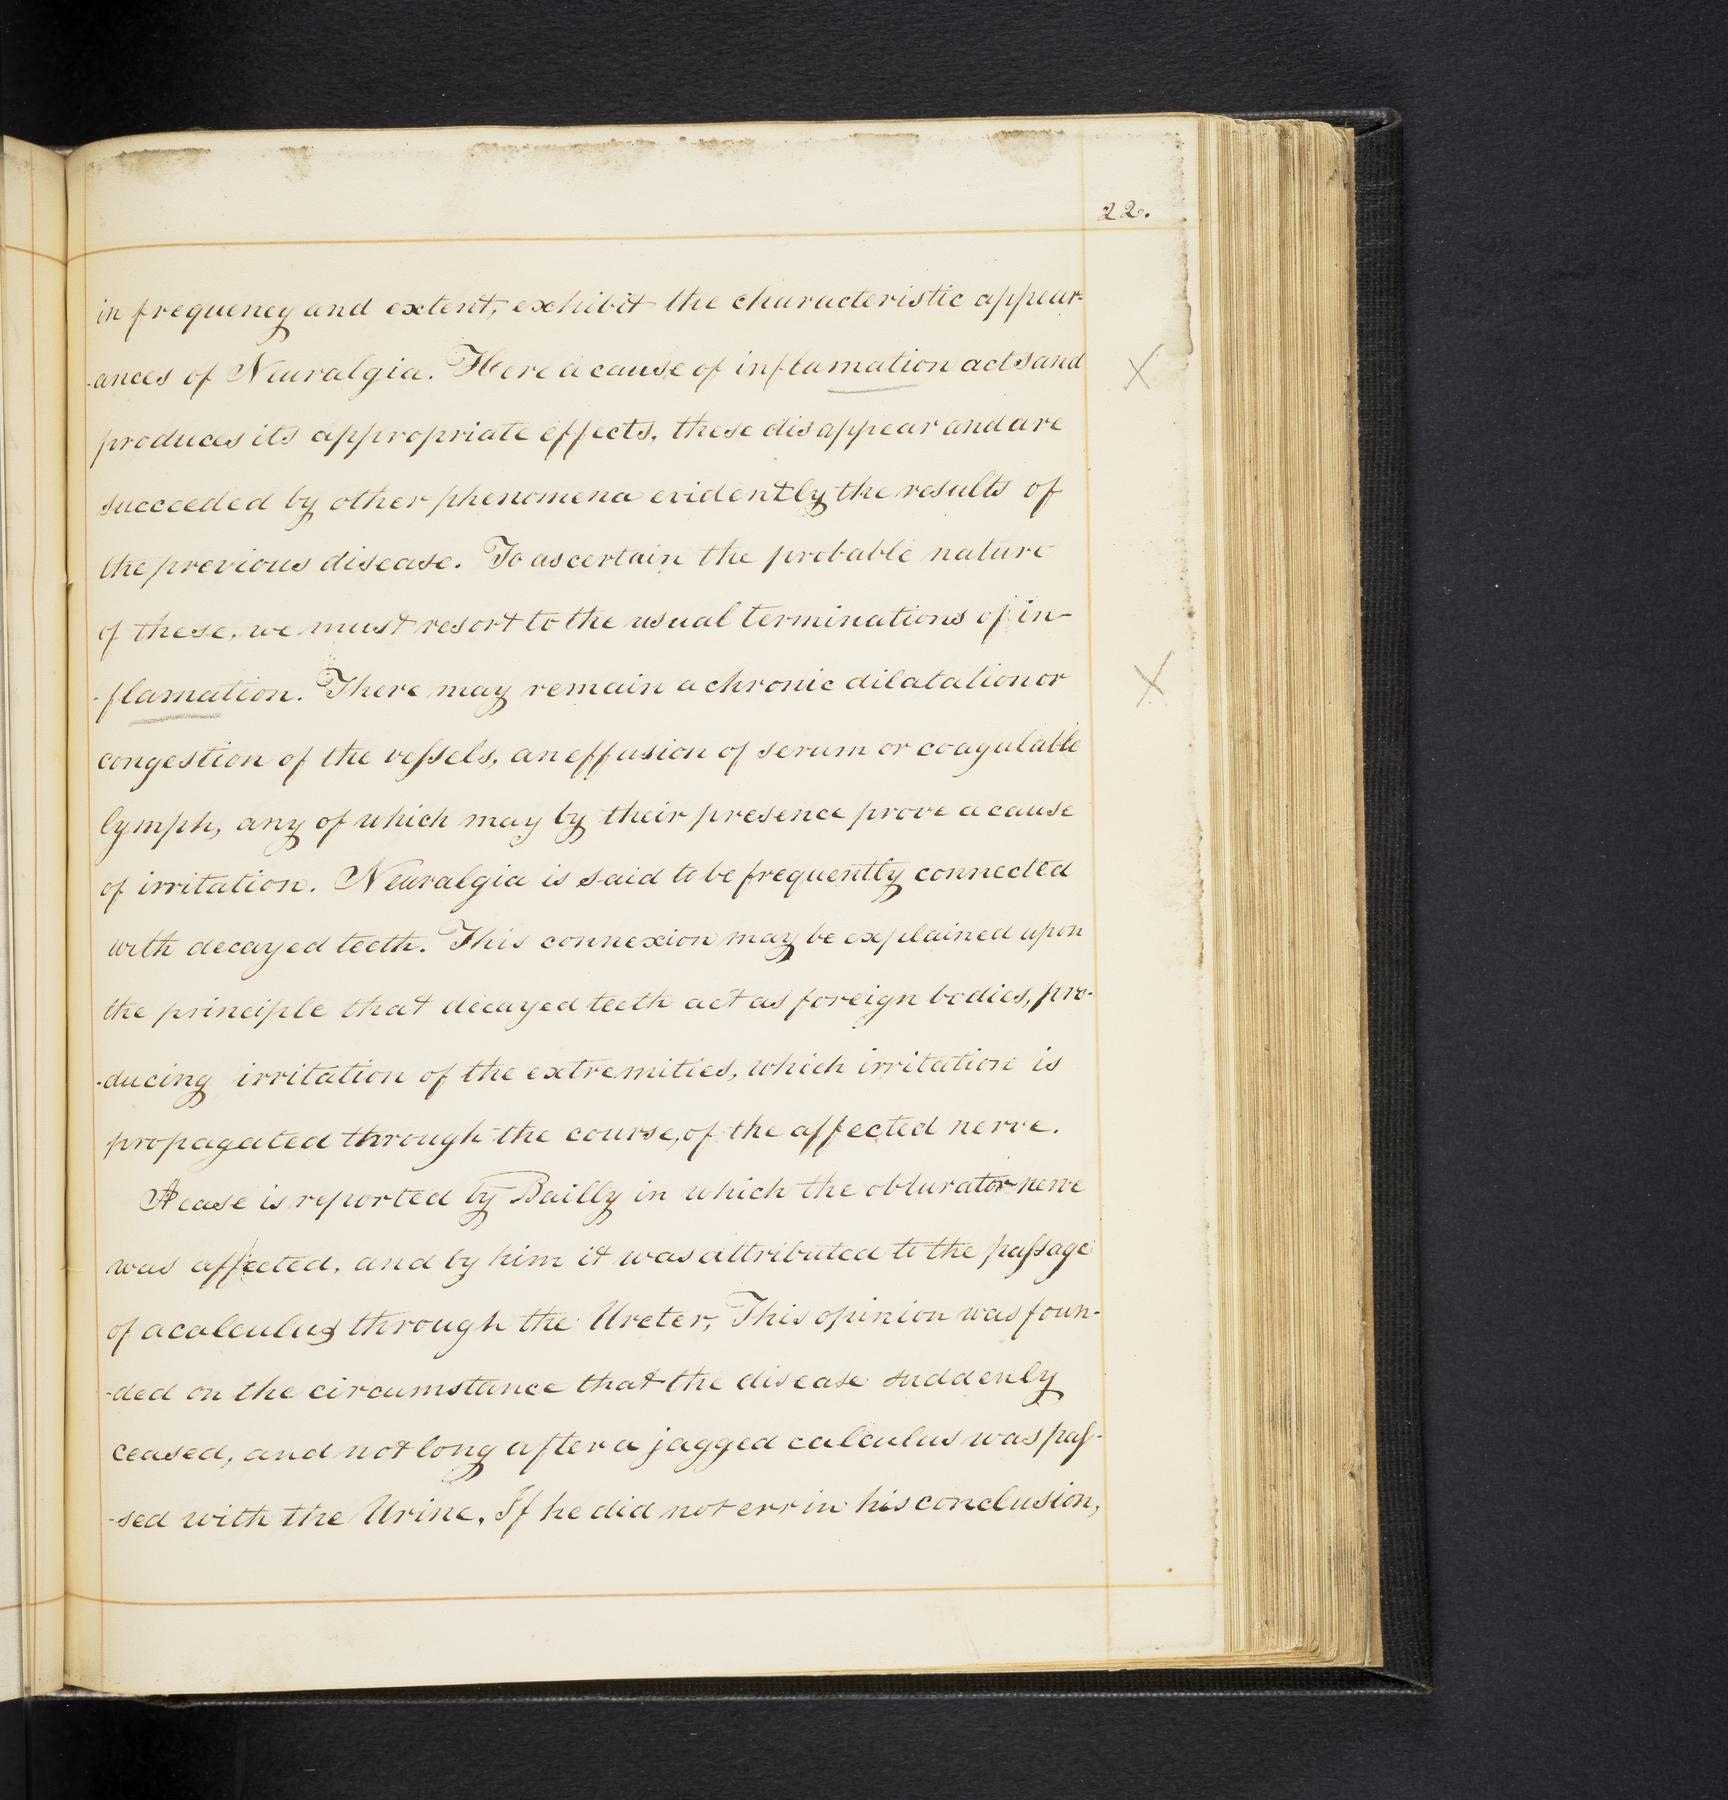 22.
in frequency and extent, exhibit the characteristic appear-
-ances of Neuralgia. Here a cause of inflamation acts and
produces its appropriate effects, these disappear and are
succeeded by other phenomena evidently the results of
the previous disease. To ascertain the probable nature
of these, we must resort to the usual terminations of in-
-flamation. There may remain a chronic dilatation or
congestion of the vessels, an effusion of serum or coagulable
lymph, any of which may by their presence prove a cause
of irritation. Neuralgia is said to be frequently connected
with decayed teeth. This connexion may be explained upon
the principle that decayed teeth act as foreign bodies, pro-
-ducing irritation of the extremities, which irritation is
propagated through the course, of the affected nerve.
A case is reported by Bailly in which the obturator nerve
was affected, and by him it was attributed to the passage
of a calculus through the Ureter, This opinion was foun-
-ded on the circumstance that the disease suddenly
ceased, and not long after a jagged calculus was pas-
-sed with the Urine. If he did not err in his conclusion,